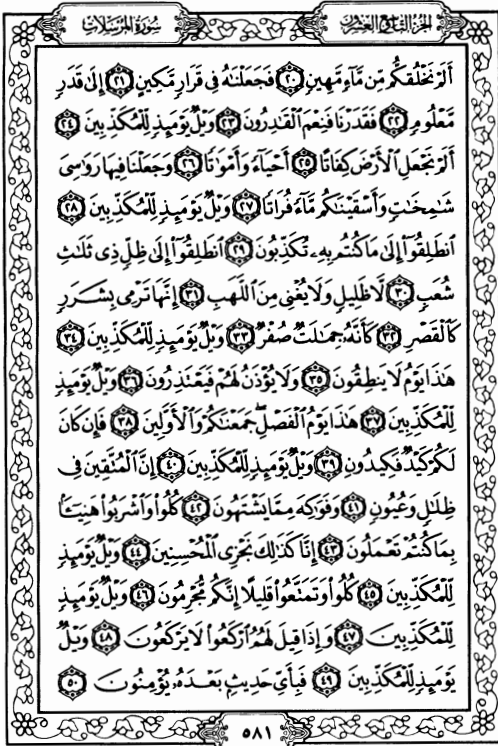 الجزء التاسع والعشرون
سورة المرسلات
أَلَمْ نَخْلُقكُّم مِّن مَّآءٍ مَّهِينٍ ٢٠ فَجَعَلْنَٰهُ فِى قَرَارٍ مَّكِينٍ ٢١ إِلَىٰ قَدَرٍ
مَّعْلُومٍ ٢٢ فَقَدَرْنَا فَنِعْمَ ٱلْقَٰدِرُونَ ٢٣ وَيْلٌ يَوْمَئِذٍ لِّلْمُكَذِّبِينَ ٢٤
أَلَمْ نَجْعَلِ ٱلْأَرْضَ كِفَاتًا ٢٥ أَحْيَآءً وَأَمْوَٰتًا ٢٦ وَجَعَلْنَا فِيهَا رَوَٰسِىَ
شَٰمِخَٰتٍ وَأَسْقَيْنَٰكُم مَّآءً فُرَاتًا ٢٧ وَيْلٌ يَوْمَئِذٍ لِّلْمُكَذِّبِينَ ٢٨
ٱنطَلِقُوٓا۟ إِلَىٰ مَا كُنتُم بِهِۦ تُكَذِّبُونَ ٢٩ ٱنطَلِقُوٓا۟ إِلَىٰ ظِلٍّ ذِى ثَلَٰثِ
شُعَبٍ ٣٠ لَّا ظَلِيلٍ وَلَا يُغْنِى مِنَ ٱللَّهَبِ ٣١ إِنَّهَا تَرْمِى بِشَرَرٍ
كَٱلْقَصْرِ ٣٢ كَأَنَّهُۥ جِمَٰلَتٌ صُفْرٌ ٣٣ وَيْلٌ يَوْمَئِذٍ لِّلْمُكَذِّبِينَ ٣٤
هَٰذَا يَوْمُ لَا يَنطِقُونَ ٣٥ وَلَا يُؤْذَنُ لَهُمْ فَيَعْتَذِرُونَ ٣٦ وَيْلٌ يَوْمَئِذٍ
لِّلْمُكَذِّبِينَ ٣٧ هَٰذَا يَوْمُ ٱلْفَصْلِ جَمَعْنَٰكُمْ وَٱلْأَوَّلِينَ ٣٨ فَإِن كَانَ
لَكُمْ كَيْدٌ فَكِيدُونِ ٣٩ وَيْلٌ يَوْمَئِذٍ لِّلْمُكَذِّبِينَ ٤٠ إِنَّ ٱلْمُتَّقِينَ فِى
ظِلَٰلٍ وَعُيُونٍ ٤١ وَفَوَٰكِهَ مِمَّا يَشْتَهُونَ ٤٢ كُلُوا۟ وَٱشْرَبُوا۟ هَنِيٓـًٔۢا
بِمَا كُنتُمْ تَعْمَلُونَ ٤٣ إِنَّا كَذَٰلِكَ نَجْزِى ٱلْمُحْسِنِينَ ٤٤ وَيْلٌ يَوْمَئِذٍ
لِّلْمُكَذِّبِينَ ٤٥ كُلُوا۟ وَتَمَتَّعُوا۟ قَلِيلًا إِنَّكُم مُّجْرِمُونَ ٤٦ وَيْلٌ يَوْمَئِذٍ
لِّلْمُكَذِّبِينَ ٤٧ وَإِذَا قِيلَ لَهُمُ ٱرْكَعُوا۟ لَا يَرْكَعُونَ ٤٨ وَيْلٌ
يَوْمَئِذٍ لِّلْمُكَذِّبِينَ ٤٩ فَبِأَىِّ حَدِيثٍۭ بَعْدَهُۥ يُؤْمِنُونَ ٥٠
٥٨١